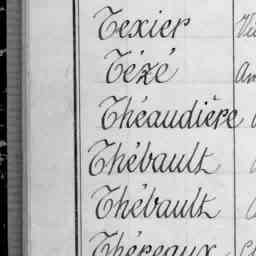 Texier
Tézé
Théaudière
Thébault
Thébault
Théreaux